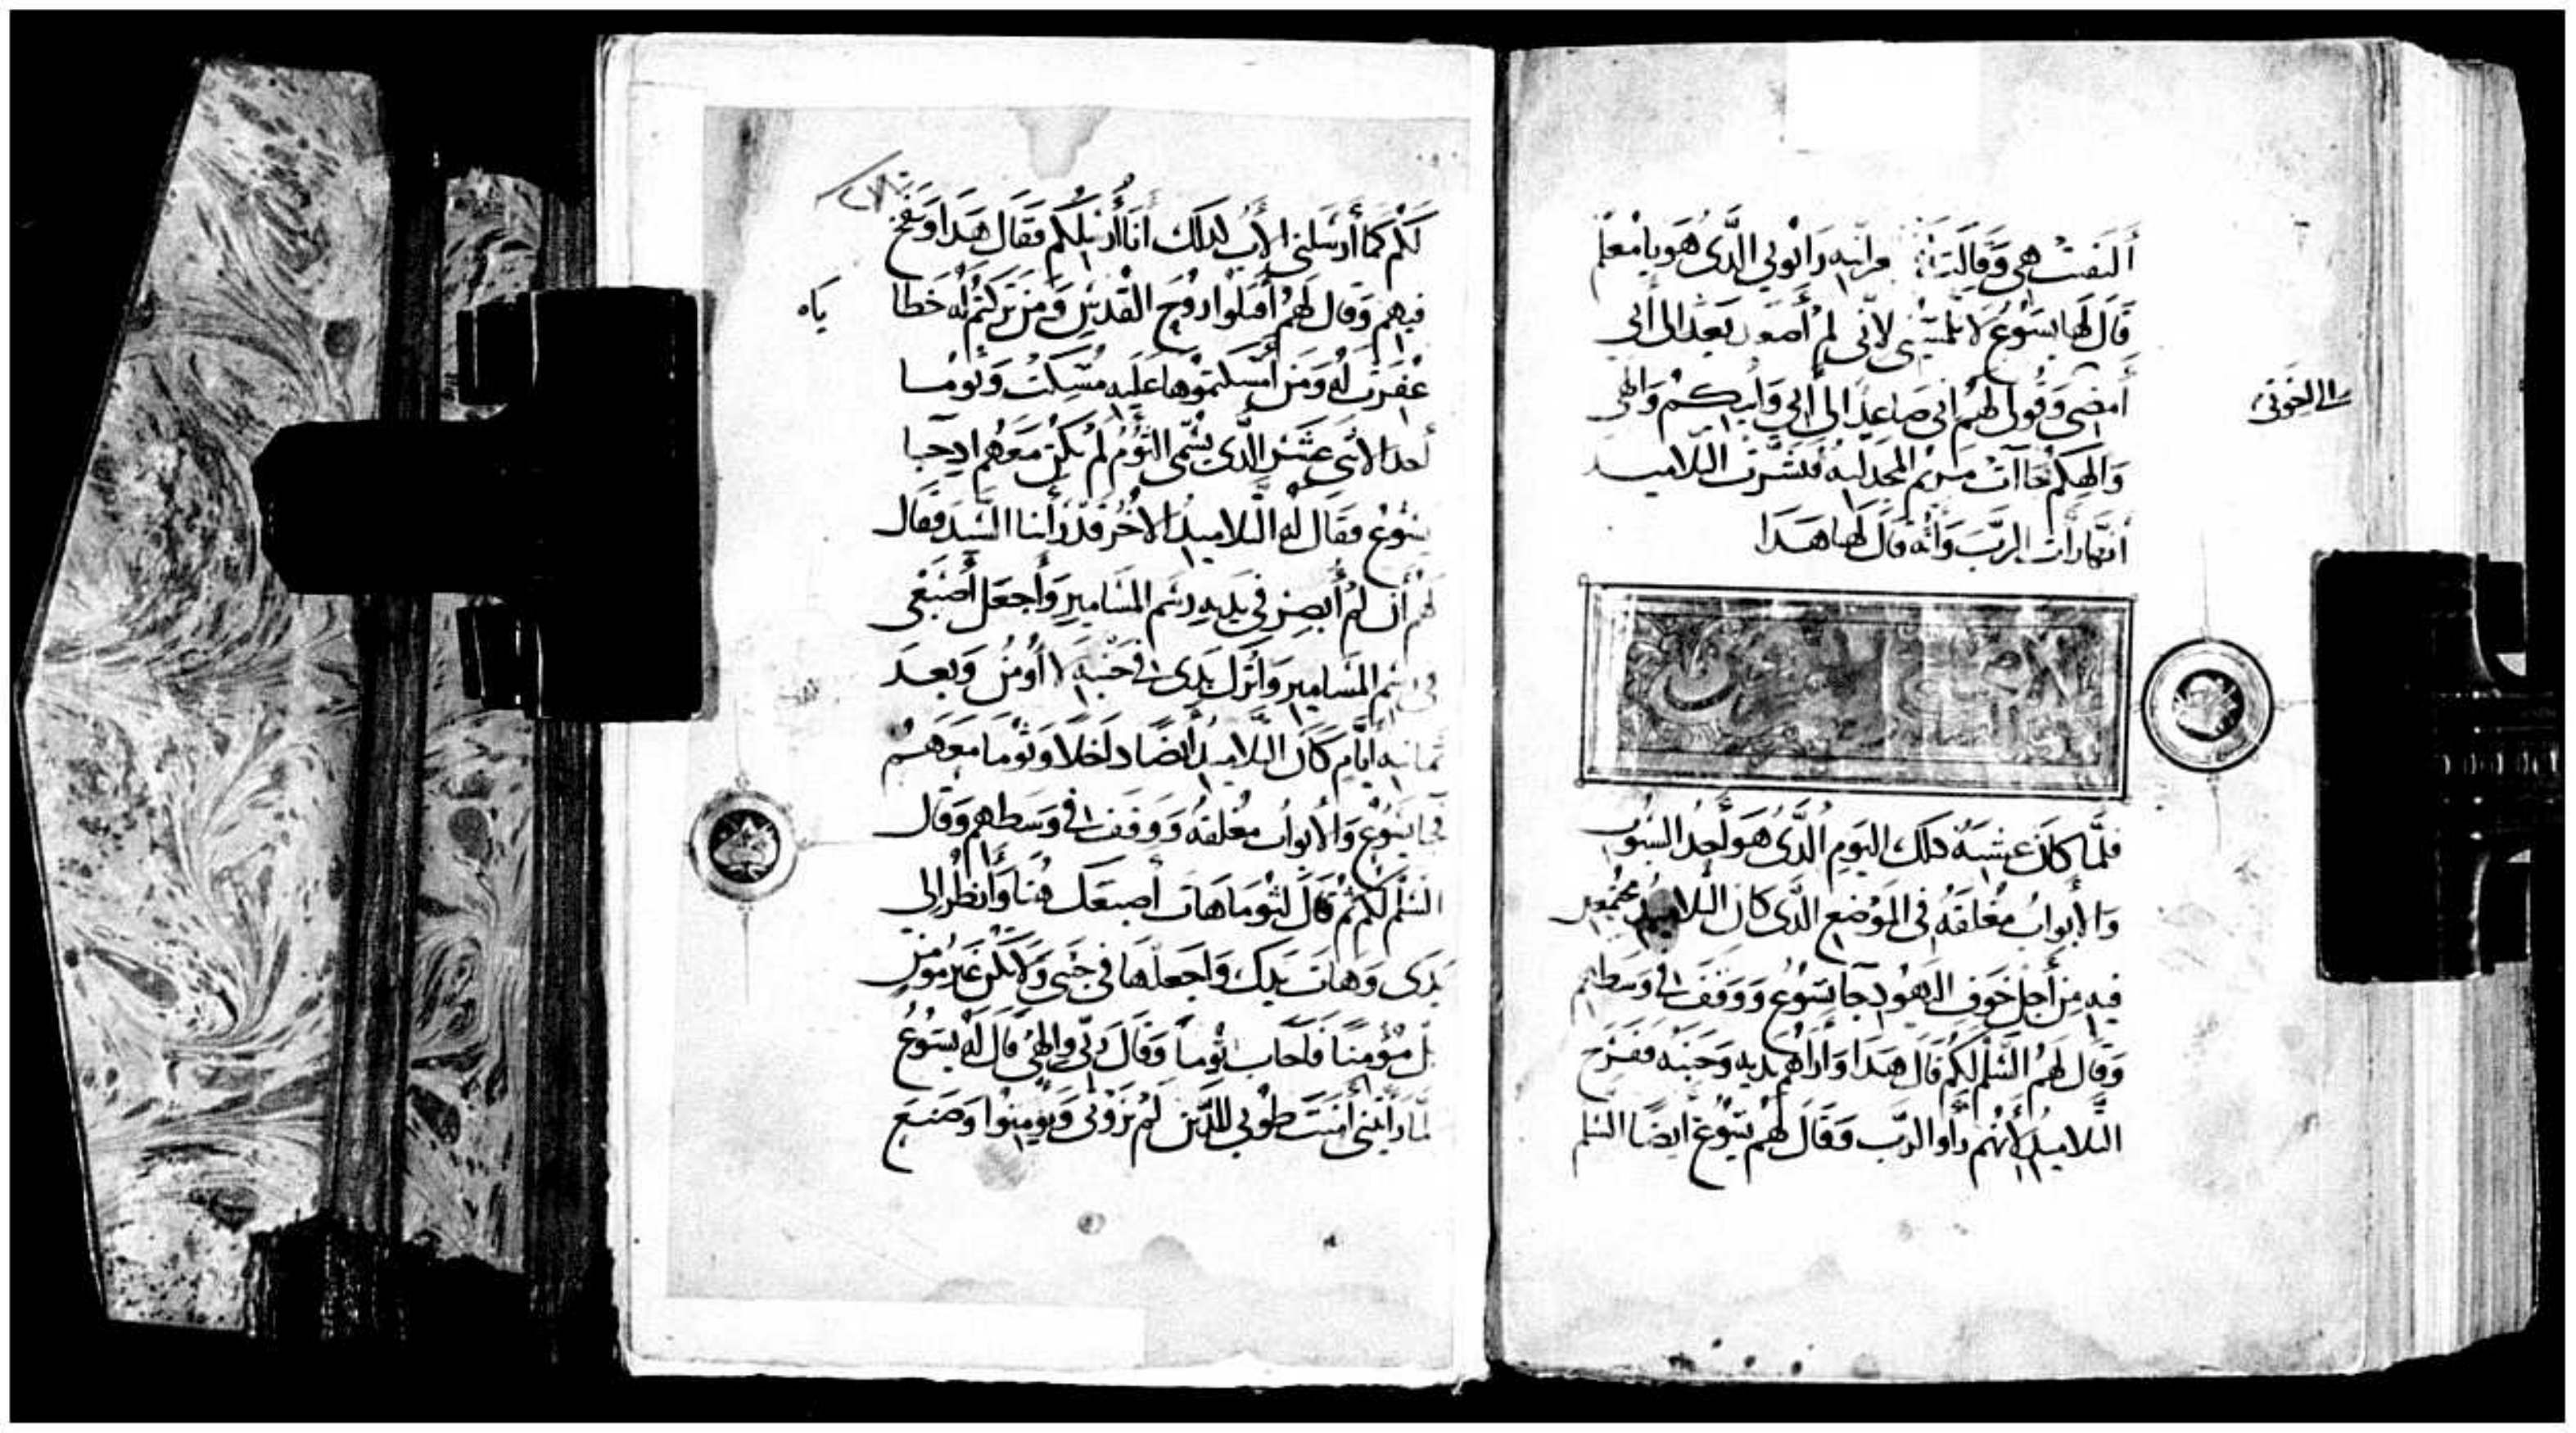 ألتفتت هي وقالت عبرانيه رابوني الذي هو يا معلم
قال لها يسوع لا تلمسيني لاني لم أصعد بعد الى أبي
أمضي وقولي لهم اني صاعد الى ابي وابيكم والهي
الى اخوتي
والهكم فجاات مريم المجدليه فبشرت التلاميد
أنها رأت الرب وأنه قال لها هدا
فلما كان عشيه دلك اليوم الذي هو أحد السبوت
والأبواب مغلقه في الموضع الذي كان التلاميد مجتمعين
فيه من أجل خوف اليهود جا يسوع ووقف في وسطهم
وقال لهم السلم لكم قال هدا وأراهم يديه وجنبه ففرح
التلاميد لأنهم رأوا الرب وقال لهم يسوع ايضا السلم
لكم كما أرسلني الأب كدلك انا أرسلكم فقال هدا ونفخ
فيهم وقال لهم أقبلوا روح القدس ومن تركتم له خطا
ياه
غفرت له ومن أمسكتموها عليه مسكت وتوما
أحد الاثني عشر الذي يسمى التؤم لم يكن معهم اد جا
يسوع فقال له التلاميد الاخر قد رأينا السيد فقال
لهم أن لم أبصر في يديه رسم المسامير وأجعل أصبعي
في رسم المسامير وأترك يدي في جنبه لا أومن وبعد
ثمانيه أيام كان التلاميد أيضا داخلا وتوما معهم
فجا يسوع والأبواب مغلقه ووقف في وسطهم وقال
السلم لكم ثم قال لتوما هات أصبعك هنا وأنظر إلى
يدي وهات يدك واجعلها في جنبي ولا تكن غير مومن
بل مؤمنا فأجاب توما وقال ربي والهي قال له يسوع
لما رأيتني أمنت طوبي للذين لم يروني ويومنوا وصنع